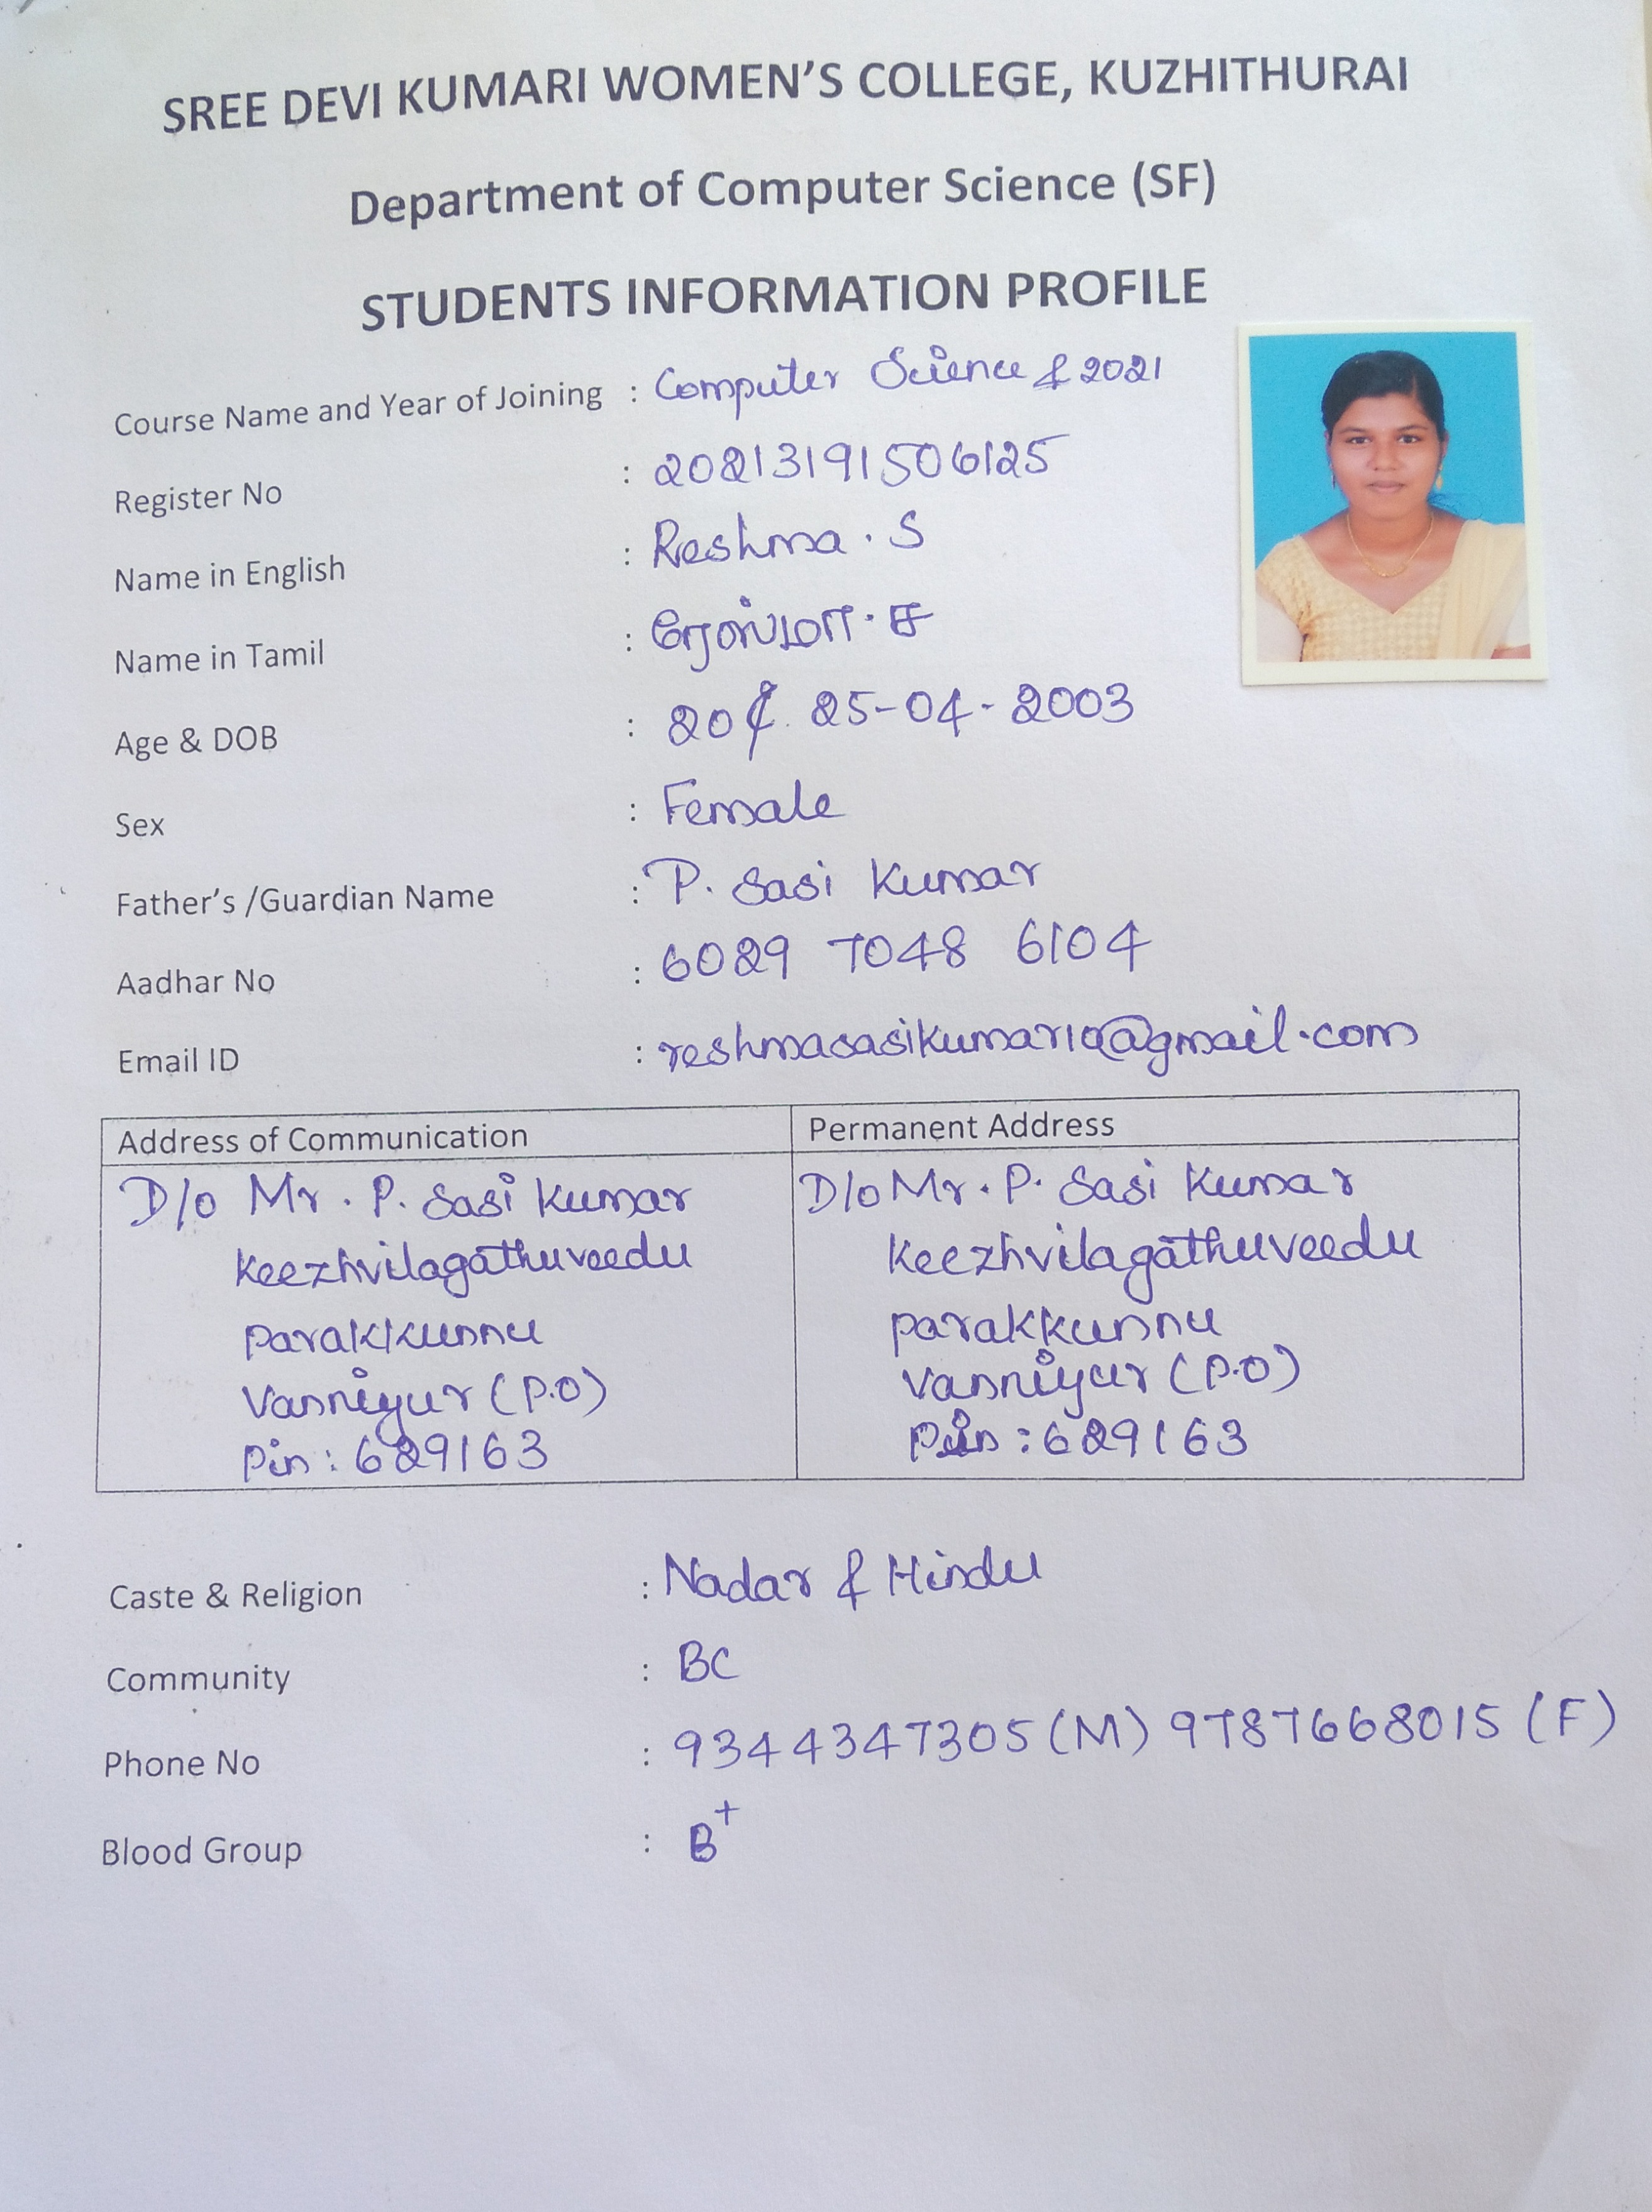 SREE DEVI KUMARI WOMEN'S COLLEGE, KUZHITHURAI
Department of Computer Science (SF)
STUDENTS INFORMATION PROFILE
Course Name and Year of Joining : Computer Science & 2021
Register No : 20213191506125
Name in English : Reshma . S
Name in Tamil : ரேஸ்மா . ச
Age & DOB : 20 & 25-04-2003
Sex : Female
Father's /Guardian Name : P. Sasi Kumar
Aadhar No : 6029 7048 6104
Email ID :
Address of Communication Permanent Address
D/o Mr . P. Sasi Kumar D/o Mr. P. Sasi Kumar
Keezhvilagathuveedu Keezhvilagathuveedu
Parakkunnu Parakkunnu
Vanniyur (P.O) Vanniyur (P.O)
Pin : 629163 Pin : 629163
Caste & Religion : Nadar & Hindu
Community : BC
Phone No : 9344347305 (M) 9787668015 (F)
Blood Group : B+